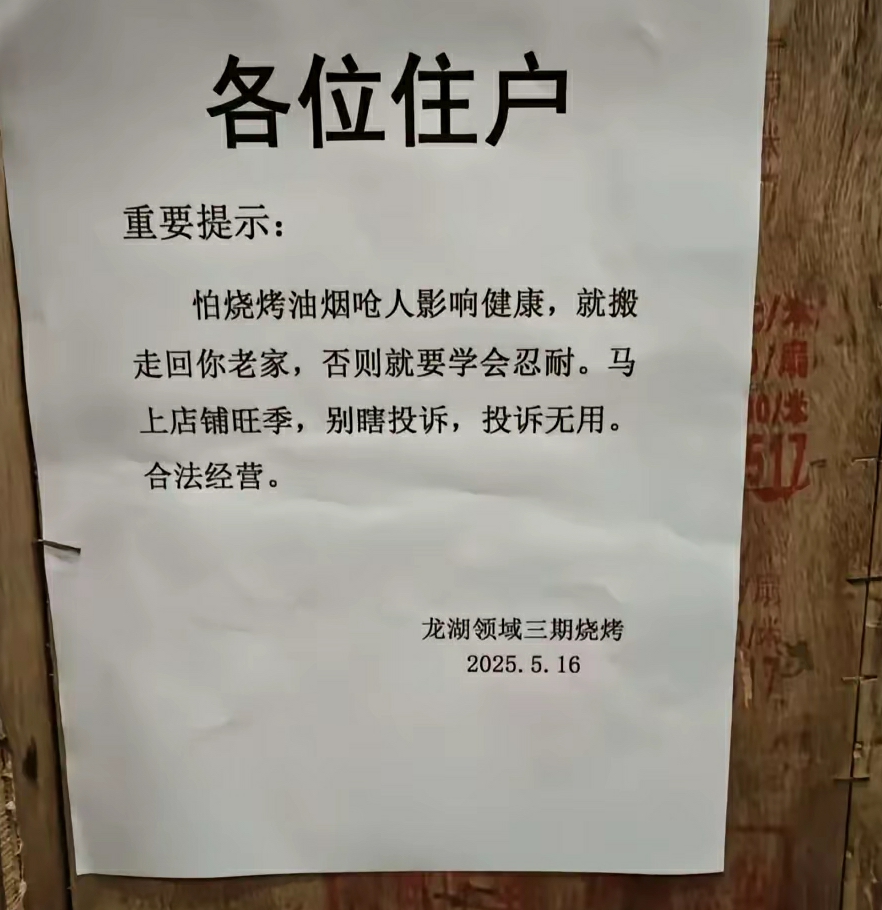 各位住户
重要提示：
怕烧烤油烟呛人影响健康，就搬
走回你老家，否则就要学会忍耐。马
上店铺旺季，别瞎投诉，投诉无用。
合法经营。
龙湖领域三期烧烤
2025.5.16
/米
/扇
10/米
517
/扇
/米
17